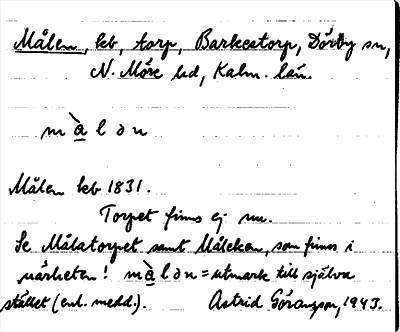 Målen, kb, torp, Barkestorp, Dörby sn,
N. Möre hd, Kalm. län.
m å̀ l ə n
Målen kb 1831.
Torpet finns ej nu.
Se Målatorpet samt Måleken, som finns i
närheten! m å̀ l ə n = utmark till själva
stället (enl. medd.). Astrid Göransson, 1943.